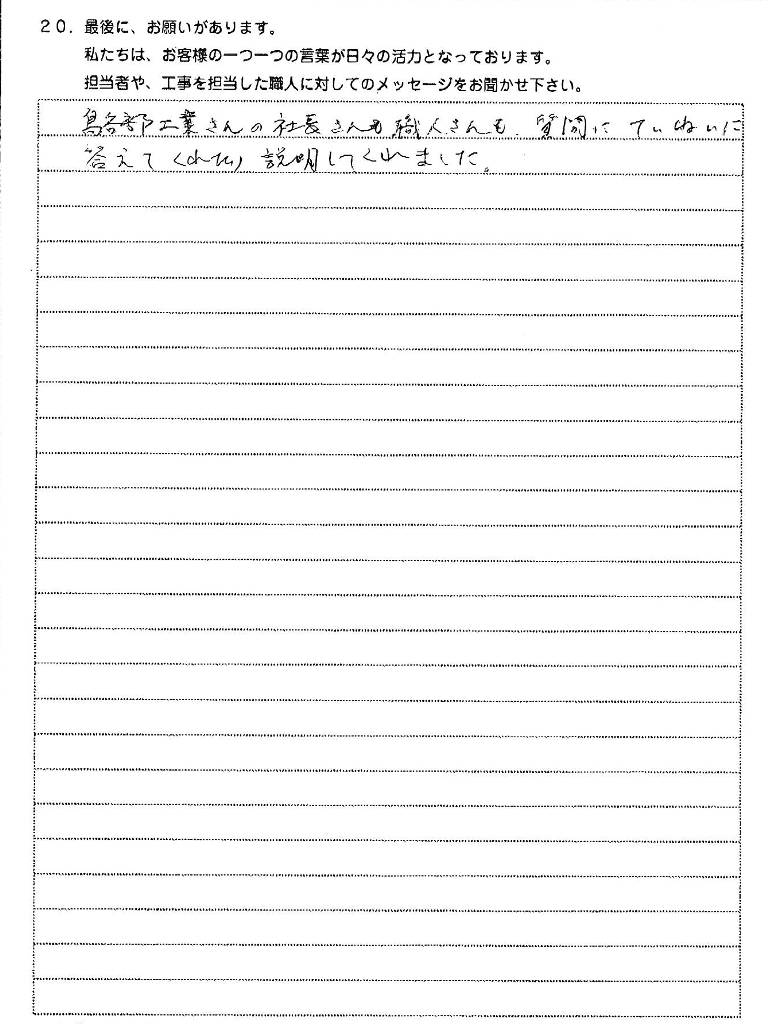 20. 最後に、お願いがあります。
私たちは、お客様の一つ一つの言葉が日々の活力となっております。
担当者や、工事を担当した職人に対してのメッセージをお聞かせ下さい。
工業さんの社長さんも職人さんも、質問にていねいに
答えてくれたり説明してくれました。